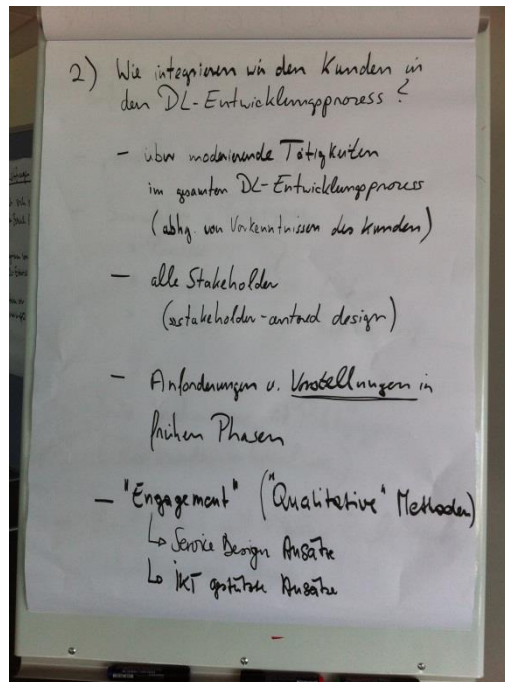 2) Wie integrieren wir den Kunden in
den DL-Entwicklungsprozess?
- über moderierende Tätigkeiten
im gesamten DL-Entwicklungsprozess
(abhg. von Vorkenntnissen des Kunden)
- alle Stakeholder
(stakeholder-centered design)
- Anforderungen u. Vorstellungen in
frühen Phasen
- "Engagement" ("Qualitative" Methoden)
↳ Service Design Ansätze
↳ IKT gestützte Ansätze